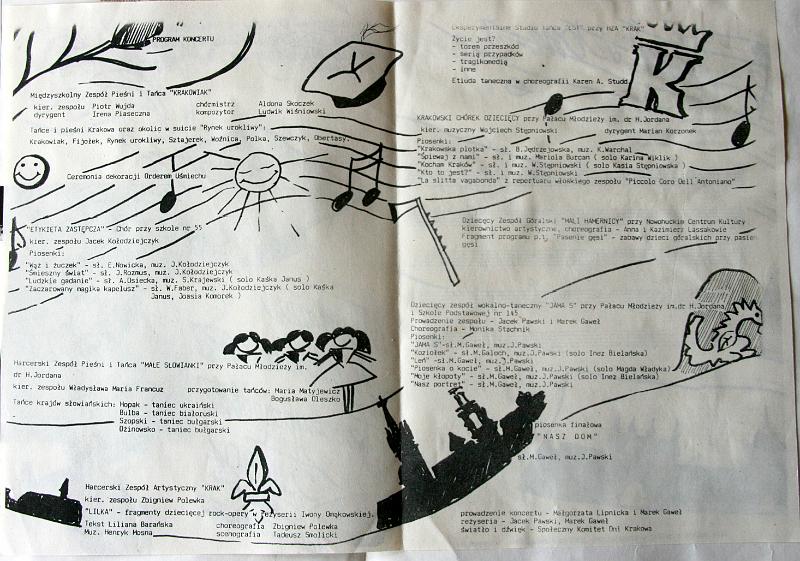 PROGRAM KONCERTU
Międzyszkolny Zespół Pieśni i Tańca "KRAKOWIAK"
kier. zespołu Piotr Wujda chórmistrz Aldona Skoczek
dyrygent Irena Piaseczna kompozytor Ludwik Wiśniowski
Tańce i pieśni Krakowa oraz okolic w suicie "Rynek urokliwy":
Krakowiak, Fijołek, Rynek urokliwy, Sztajerek, Woźnica, Polka, Szewczyk, Obertasy.
Ceremonia dekoracji Orderem Uśmiechu
"ETYKIETA ZASTĘPCZA" - Chór przy szkole nr 55
kier. zespołu Jacek Kołodziejczyk
Piosenki:
"Wąż i żuczek" - sł. E.Nowicka, muz. J.Kołodziejczyk
"Śmieszny świat" - sł. J.Rozmus, muz. J.Kołodziejczyk
"Ludzkie gadanie" - sł. A.Osiecka, muz. S.Krajewski ( solo Kaśka Janus )
"Zaczarowany magika kapelusz" - sł. W.Faber, muz. J.Kołodziejczyk ( solo Kaśka
Janus, Joasia Komorek )
Harcerski Zespół Pieśni i Tańca "MALE SŁOWIANKI" przy Pałacu Młodzieży im.
dr H.Jordana
kier. zespołu Władysława Maria Francuz przygotowanie tańców: Maria Matyjewicz
Bogusława Oleszko
Tańce krajów słowiańskich: Hopak - taniec ukraiński
Bulba - taniec białoruski
Szopski - taniec bułgarski
Dżinowsko - taniec bułgarski
Harcerski Zespół Artystyczny "KRAK"
kier. zespołu Zbigniew Polewka
"LILKA" - fragmenty dziecięcej rock-opery w reżyserii Iwony Omąkowskiej.
Tekst Liliana Barańska choreografia Zbigniew Polewka
Muz. Henryk Mosna scenografia Tadeusz Smolicki
Eksperymentalne Studio Tańca "EST" przy HZA "KRAK"
Życie jest?
- torem przeszkód
- serią przypadków
- tragikomedią
- inne
Etiuda taneczna w choreografii Karen A. Studd
K
KRAKOWSKI CHÓREK DZIECIĘCY przy Pałacu Młodzieży im. dr H.Jordana
kier. muzyczny Wojciech Stępniowski dyrygent Marian Korzonek
Piosenki:
"Krakowska plotka" - sł. B.Jędrzejowska, muz. K.Warchał
"Śpiewaj z nami" - sł. i muz. Mariola Burcan ( solo Karina Wiklik )
"Kocham Kraków" - sł. i muz. W.Stępniowski ( solo Kasia Stępniowska )
"Kto to jest?" - sł. i muz. W.Stępniowski
"La slitta vagabonda" z repertuaru włoskiego zespołu "Piccolo Coro Dell Antoniano"
Dziecięcy Zespół Góralski "MALI HAMERNICY" przy Nowohuckim Centrum Kultury
kierownictwo artystyczne, choreografia - Anna i Kazimierz Lassakowie
Fragment programu p.t. "Pasenie gęsi" - zabawy dzieci góralskich przy pasie-
gęsi
Dziecięcy zespół wokalno-taneczny "JAMA S" przy Pałacu Młodzieży im.dr H.Jordana
i Szkole Podstawowej nr 145
Prowadzenie zespołu - Jacek Pawski i Marek Gaweł
Choreografia - Monika Stachnik
Piosenki:
"JAMA S"-sł.M.Gaweł, muz.J.Pawski
"Koziołek" - sł.M.Gałoch, muz.J.Pawski (solo Inez Bielańska)
"Leń" -sł.M.Gaweł, muz.J.Pawski
"Piosenka o kocie" - sł.M.Gaweł, muz.J.Pawski (solo Magda Władyka)
"Moje kłopoty" - sł.M.Gaweł, muz.J.Pawski (solo Inez Bielańska)
"Nasz portret" - sł.M.Gaweł, muz.J.Pawski
piosenka finałowa
"NASZ DOM"
sł.M.Gaweł, muz.J.Pawski
prowadzenie koncertu - Małgorzata Lipnicka i Marek Gaweł
reżyseria - Jacek Pawski, Marek Gaweł
światło i dźwięk - Społeczny Komitet Dni Krakowa